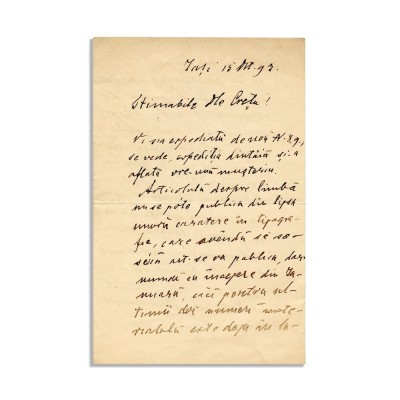 Iași 15 Oct. 93.
Stimabile Dle Crețu!
Vi s'a expediată de nou N. 8 9,
se vede, expediția dintâiă și-a
aflată vre-ună mușteriu.
Articolulă despre limbă
nu se pôte publica din lipsa
unoră caractere în tipogra-
fia, care avêndă să so-
séscă
va publica, dar
numai cu începere din Ia-
nuară, căci pentru ul-
timii doi numeri mate-
rialulă este deja în lu-